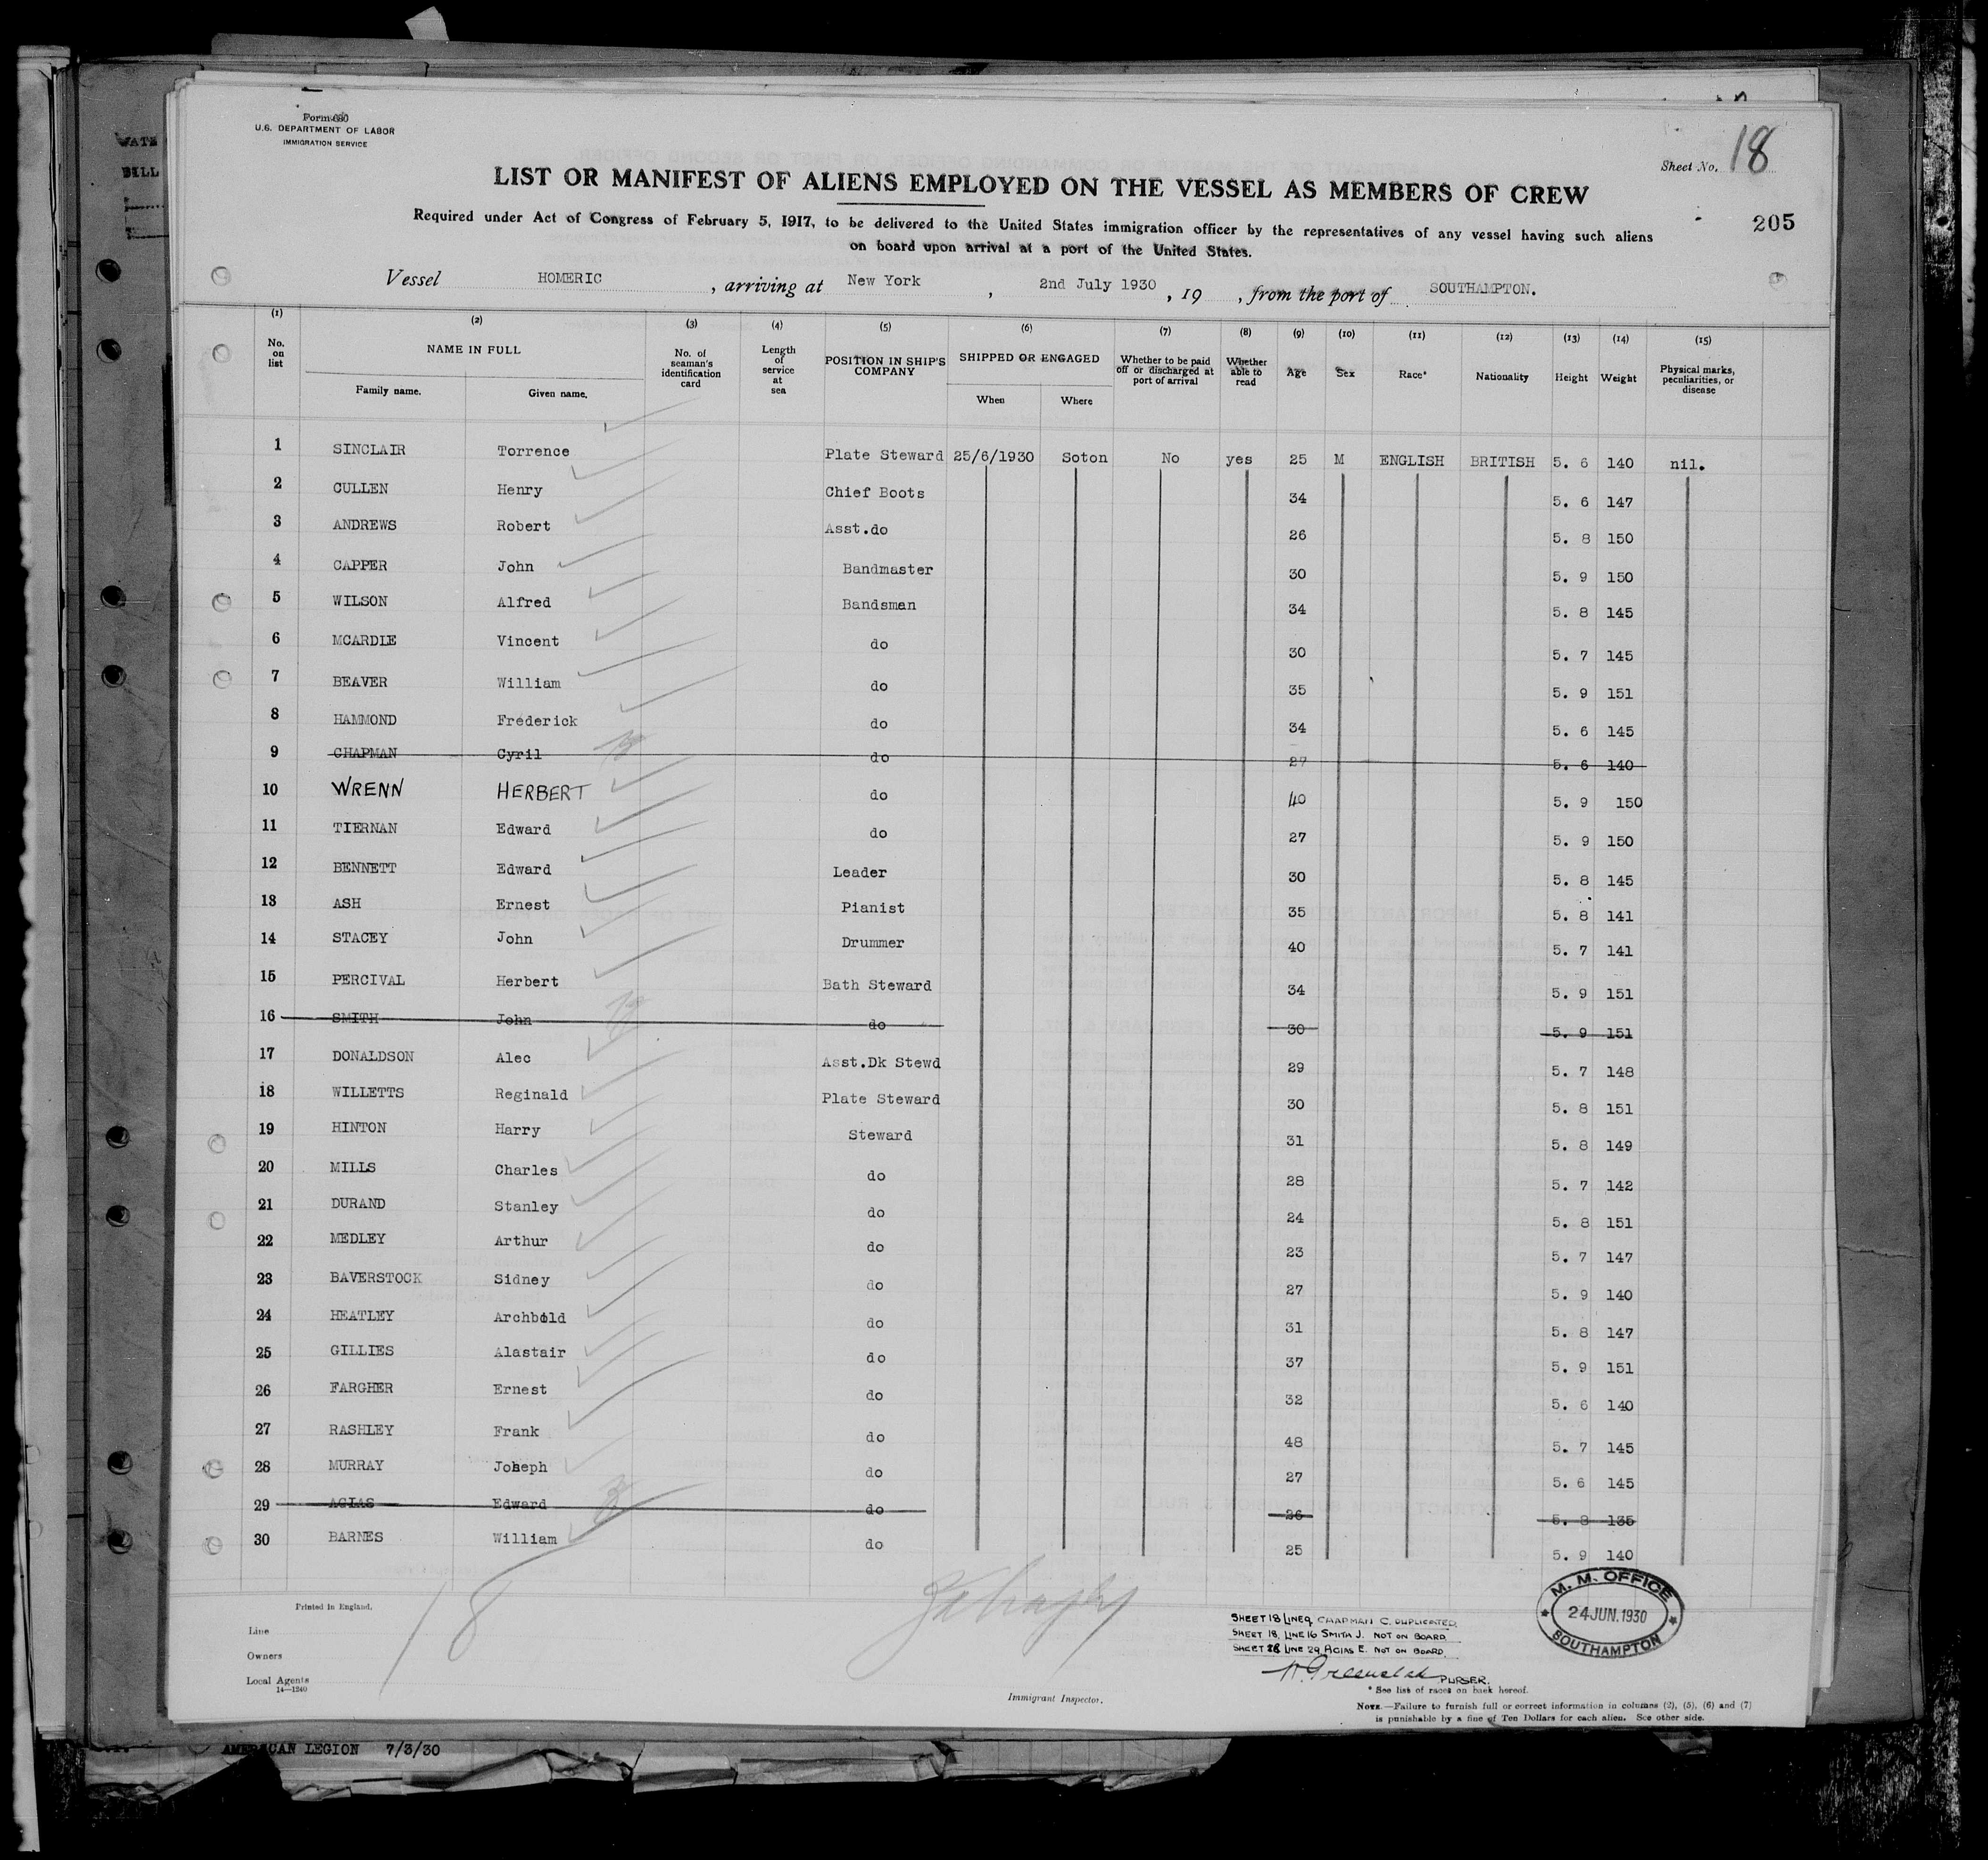 Form 680
U.S. DEPARTMENT OF LABOR
IMMIGRATION SERVICE
Sheet No. 18
LIST OR MANIFEST OF ALIENS EMPLOYED ON THE VESSEL AS MEMBERS OF CREW
205
Required under Act of Congress of February 5, 1917, to be delivered to the United States immigration officer by the representatives of any vessel having such aliens
on board upon arrival at a port of the United States.
Vessel HOMERIC , arriving at New York , 2nd July 1930 , 19 , from the port of SOUTHAMPTON.
(1) (2) (3) (4) (5) (6) (7) (8) (9) (10) (11) (12) (13) (14) (15)
No. on list NAME IN FULL Family name. Given name. No. of seaman's identification card Length of service at sea POSITION IN SHIP'S COMPANY SHIPPED OR ENGAGED When Where Whether to be paid off or discharged at port of arrival Whether able to read Age Sex Race* Nationality Height Weight Physical marks, peculiarities, or disease
1 SINCLAIR Torrence Plate Steward 25/6/1930 Soton No yes 25 M ENGLISH BRITISH 5. 6 140 nil.
2 CULLEN Henry Chief Boots 34 5. 6 147
3 ANDREWS Robert Asst.do 26 5. 8 150
4 CAPPER John Bandmaster 30 5. 9 150
5 WILSON Alfred Bandsman 34 5. 8 145
6 MCARDLE Vincent do 30 5. 7 145
7 BEAVER William do 35 5. 9 151
8 HAMMOND Frederick do 34 5. 6 145
9 CHAPMAN Cyril do 27 5. 6 140
10 WRENN HERBERT do 40 5. 9 150
11 TIERNAN Edward do 27 5. 9 150
12 BENNETT Edward Leader 30 5. 8 145
13 ASH Ernest Pianist 35 5. 8 141
14 STACEY John Drummer 40 5. 7 141
15 PERCIVAL Herbert Bath Steward 34 5. 9 151
16 SMITH John do 30 5. 9 151
17 DONALDSON Alec Asst.Dk Stewd 29 5. 7 148
18 WILLETTS Reginald Plate Steward 30 5. 8 151
19 HINTON Harry Steward 31 5. 8 149
20 MILLS Charles do 28 5. 7 142
21 DURAND Stanley do 24 5. 8 151
22 MEDLEY Arthur do 23 5. 7 147
23 BAVERSTOCK Sidney do 27 5. 9 140
24 HEATLEY Archbold do 31 5. 8 147
25 GILLIES Alastair do 37 5. 9 151
26 FARGHER Ernest do 32 5. 6 140
27 RASHLEY Frank do 48 5. 7 145
28 MURRAY Joseph do 27 5. 6 145
29 AGIAS Edward do 26 5. 8 135
30 BARNES William do 25 5. 9 140
18
Printed in England.
Line
Owners
Local Agents
14—1240
Immigrant Inspector.
SHEET 18 LINE 9 CHAPMAN C. DUPLICATED.
SHEET 18. LINE 16 SMITH J. NOT ON BOARD.
SHEET 18 LINE 29 AGIAS E. NOT ON BOARD.
PURSER.
M. M. OFFICE
24 JUN. 1930
SOUTHAMPTON
* See list of races on back hereof.
NOTE.—Failure to furnish full or correct information in columns (2), (5), (6) and (7)
is punishable by a fine of Ten Dollars for each alien. See other side.
AMERICAN LEGION 7/3/30